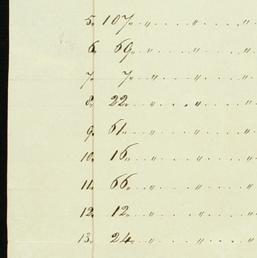 5. 107 " . . . " . . . . "
6. 69 " . . . " . . . . "
7. 7 " . . . " . . . . "
8. 22 " . . . " . . . . "
9. 61 " . . . " . . . . "
10. 16 " . . . " . . . . "
11. 66 " . . . " . . . . "
12. 12 " . . . " . . . . "
13. 24 " . . . " . . . . "